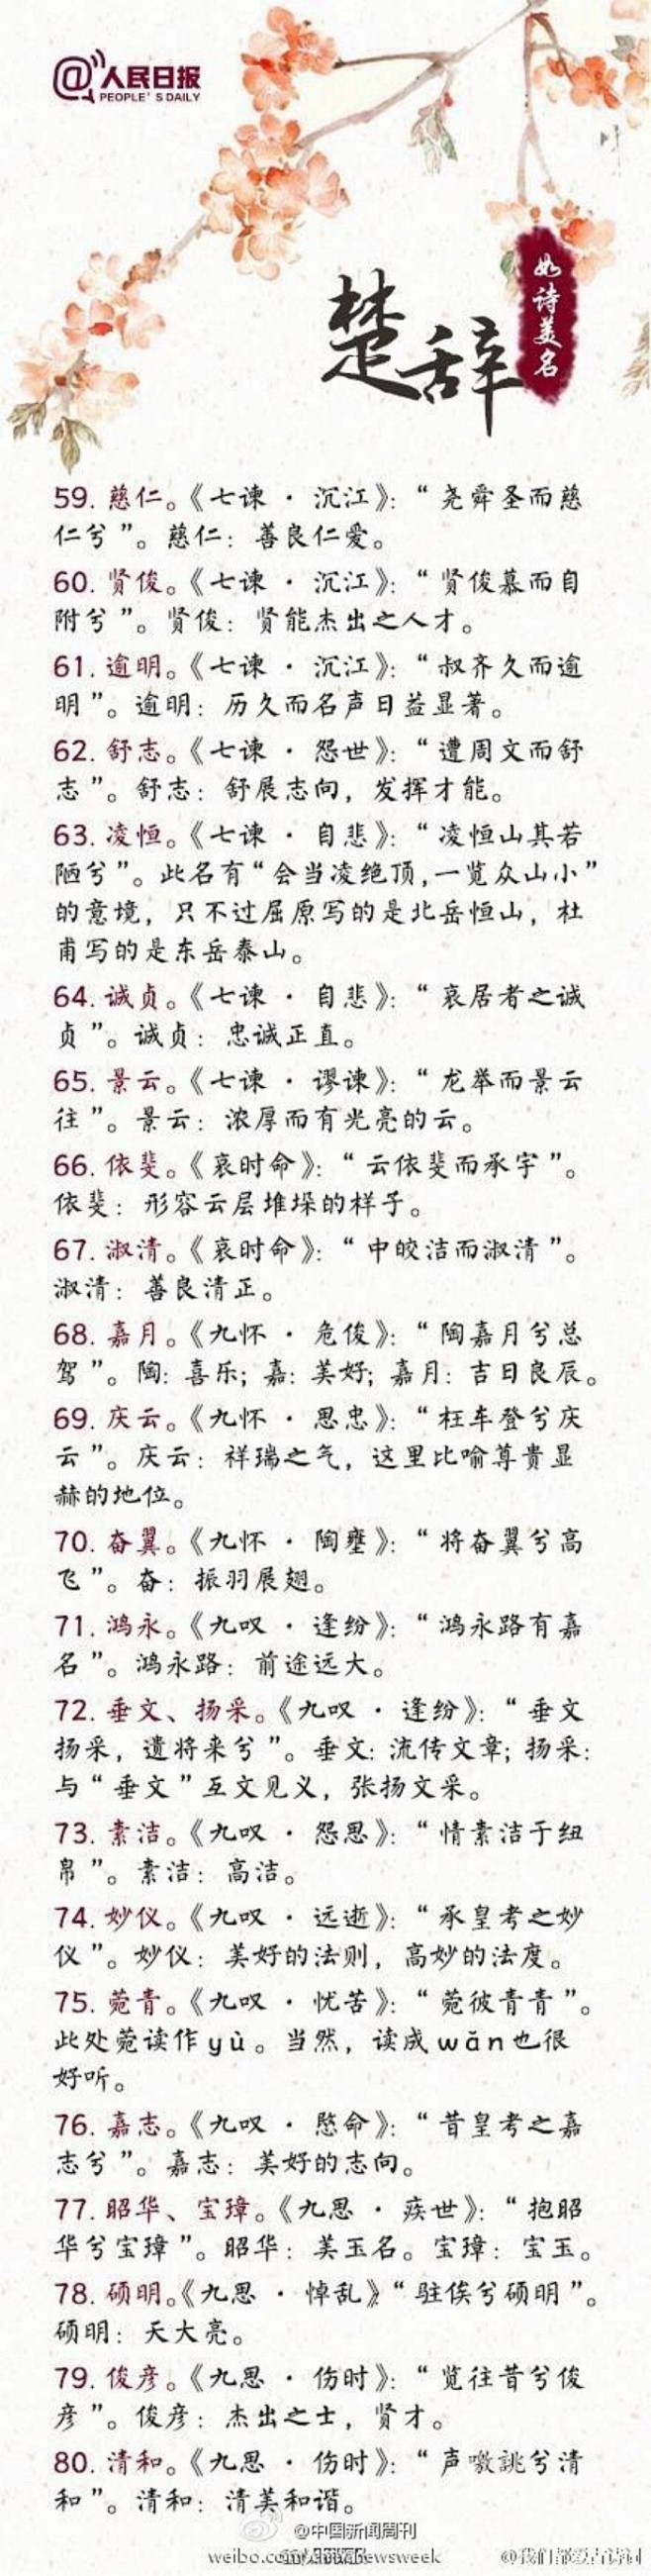 @人民日报
PEOPLE'S DAILY
楚辞
如诗美名
59. 慈仁。《七谏·沉江》：“尧舜圣而慈
仁兮”。慈仁：善良仁爱。
60. 贤俊。《七谏·沉江》：“贤俊慕而自
附兮”。贤俊：贤能杰出之人才。
61. 逾明。《七谏·沉江》：“叔齐久而逾
明”。逾明：历久而名声日益显著。
62. 舒志。《七谏·怨世》：“遭周文而舒
志”。舒志：舒展志向，发挥才能。
63. 凌恒。《七谏·自悲》：“凌恒山其若
陋兮”。此名有“会当凌绝顶，一览众山小”
的意境，只不过屈原写的是北岳恒山，杜
甫写的是东岳泰山。
64. 诚贞。《七谏·自悲》：“哀居者之诚
贞”。诚贞：忠诚正直。
65. 景云。《七谏·谬谏》：“龙举而景云
往”。景云：浓厚而有光亮的云。
66. 依斐。《哀时命》：“云依斐而承宇”。
依斐：形容云层堆垛的样子。
67. 淑清。《哀时命》：“中皎洁而淑清”。
淑清：善良清正。
68. 嘉月。《九怀·危俊》：“陶嘉月兮总
驾”。陶：喜乐；嘉：美好；嘉月：吉日良辰。
69. 庆云。《九怀·思忠》：“枉车登兮庆
云”。庆云：祥瑞之气，这里比喻尊贵显
赫的地位。
70. 奋翼。《九怀·陶壅》：“将奋翼兮高
飞”。奋：振羽展翅。
71. 鸿永。《九叹·逢纷》：“鸿永路有嘉
名”。鸿永路：前途远大。
72. 垂文、扬采。《九叹·逢纷》：“垂文
扬采，遗将来兮”。垂文：流传文章；扬采：
与“垂文”互文见义，张扬文采。
73. 素洁。《九叹·怨思》：“情素洁于纽
帛”。素洁：高洁。
74. 妙仪。《九叹·远逝》：“承皇考之妙
仪”。妙仪：美好的法则，高妙的法度。
75. 菀青。《九叹·忧苦》：“菀彼青青”。
此处菀读作yù。当然，读成wǎn也很
好听。
76. 嘉志。《九叹·愍命》：“昔皇考之嘉
志兮”。嘉志：美好的志向。
77. 昭华、宝璋。《九思·疾世》：“抱昭
华兮宝璋”。昭华：美玉名。宝璋：宝玉。
78. 硕明。《九思·悼乱》“驻俟兮硕明”。
硕明：天大亮。
79. 俊彦。《九思·伤时》：“览往昔兮俊
彦”。俊彦：杰出之士，贤才。
80. 清和。《九思·伤时》：“声噭誂兮清
和”。清和：清美和谐。
@中国新闻周刊